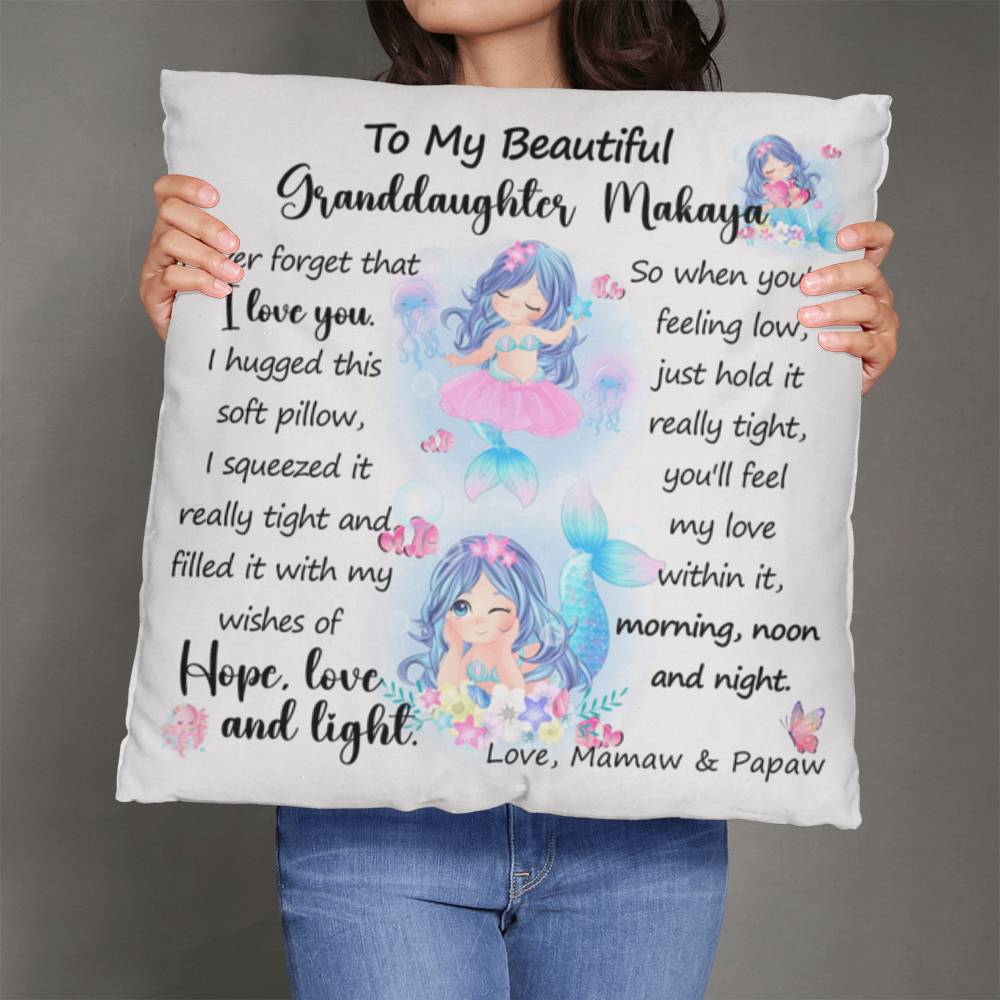 To My Beautiful
Granddaughter Makaya
forget that
I love you.
I hugged this
soft pillow,
I squeezed it
really tight and
filled it with my
wishes of
Hope, love
and light.
So when
feeling low,
just hold it
really tight,
you'll feel
my love
within it,
morning, noon
and night.
Love, Mamaw & Papaw